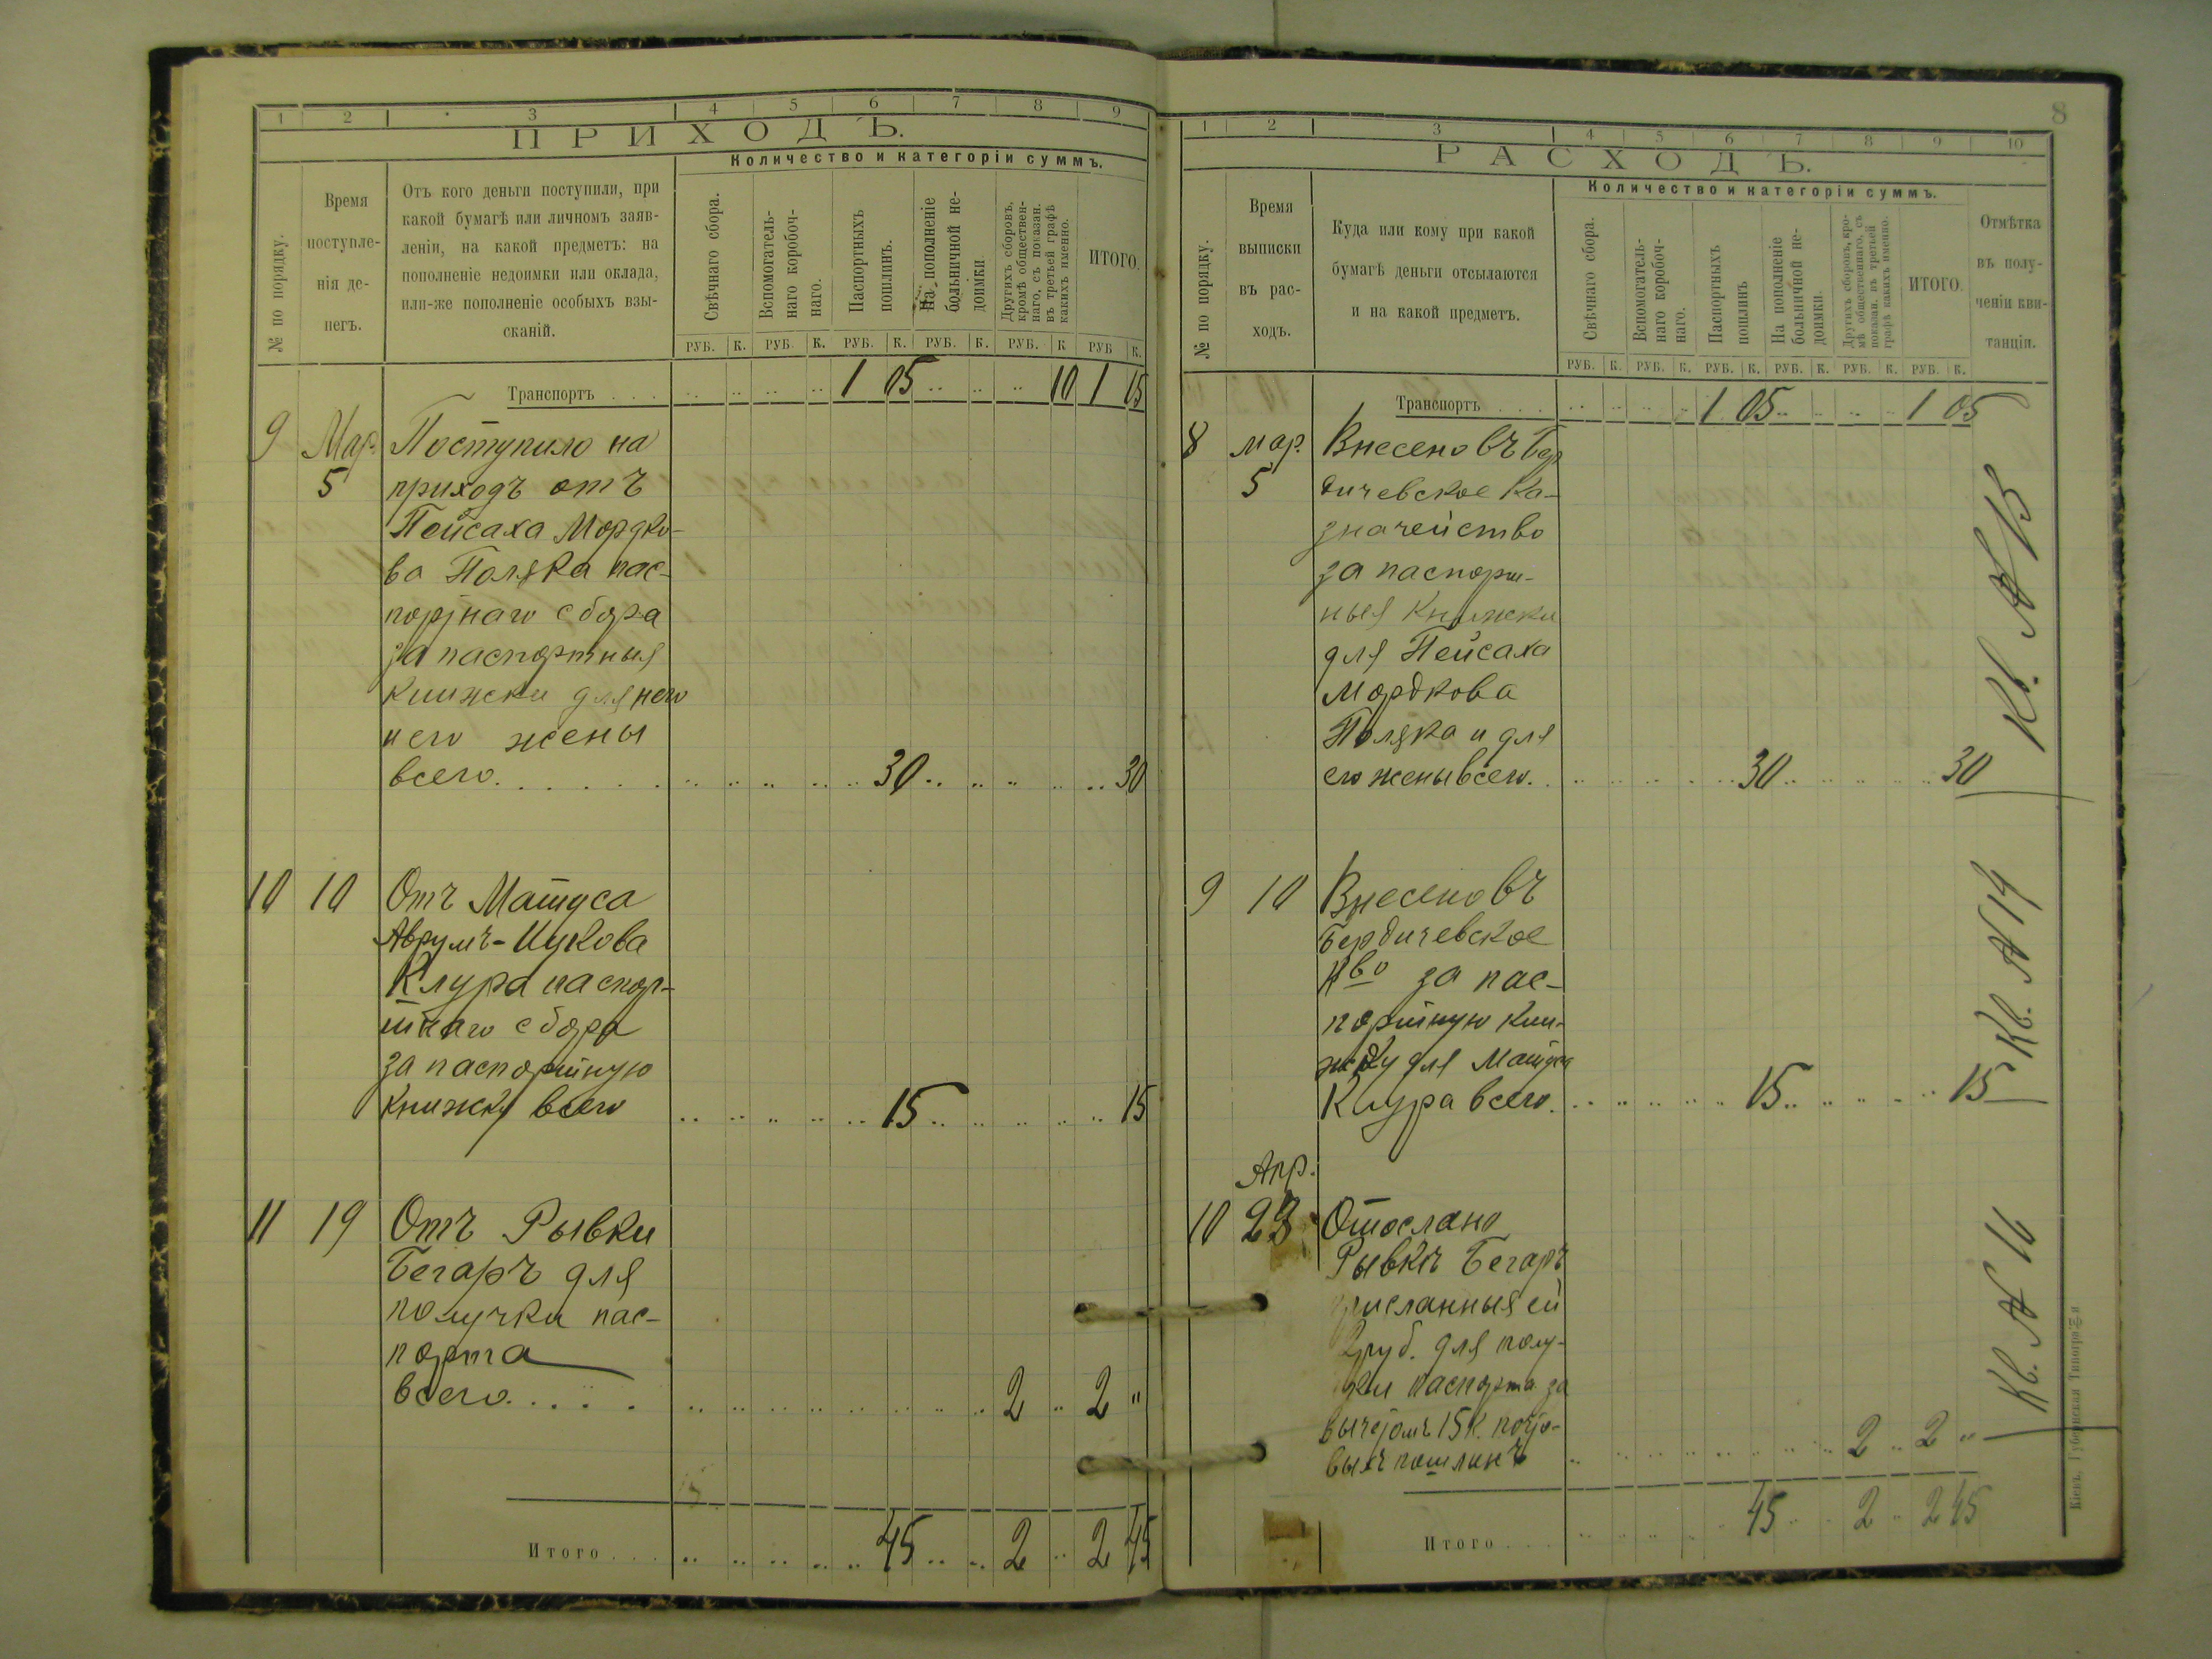 1 2 3 4 5 6 7 8 9
ПРИХОДЪ.
Количество и категоріи суммъ.
№ по порядку.
Время
поступле-
нія де-
негъ.
Отъ кого деньги поступили, при
какой бумагѣ или личномъ заяв-
леніи, на какой предметъ: на
пополненіе недоимки или оклада,
или-же пополненіе особыхъ взы-
сканій.
Свѣчнаго сбора.
Вспомогатель-
наго коробоч-
наго.
Паспортныхъ
пошлинъ.
На пополненіе
больничной не-
доимки
Другихъ сборовъ,
кромѣ обществен-
наго, съ показан.
въ третьей графѣ
какихъ именно.
ИТОГО.
РУБ. К. РУБ. К. РУБ. К. РУБ. К. РУБ. К РУБ К.
Транспортъ . . . 1 05 10 1 15
9 Мар. Поступило на
5 приходъ отъ
Пейсаха Мордко-
ва Поляка пас-
портнаго сбора
за паспортныя
книжки для него
и его жены
всего. . . . . . 30 30
10 10 Отъ Матуса
Аврумъ-Ицкова
Клура паспор-
тнаго сбора
за паспортную
книжку всего 15 15
11 19 Отъ Рывки
Бегаръ для
получки пас-
порта
всего. . . . . 2 2 "
Итого . . . 45 2 2 45
8
1 2 3 4 5 6 7 8 9 10
РАСХОДЪ.
Количество и категоріи суммъ.
№ по порядку.
Время
выписки
въ рас-
ходъ.
Куда или кому при какой
бумагѣ деньги отсылаются
и на какой предметъ.
Свѣчнаго сбора.
Вспомогатель-
наго коробоч-
наго.
Паспортныхъ
пошлинъ
На пополненіе
больничной не-
доимки.
Другихъ сборовъ, кро-
мѣ общественнаго, съ
показан. въ третьей
графѣ какихъ именно.
ИТОГО.
Отмѣтка
въ полу-
ченіи кви-
танціи.
РУБ. К. РУБ. К. РУБ. К. РУБ. К. РУБ. К. РУБ. К.
Транспортъ . . . 1 05 1 05
8 мар. Внесено въ Бер
5 дичевское Ка-
значейство
за паспорт-
ныя книжки
для Пейсаха
Мордкова
Поляка и для
его жены всего. . 30 30
Кв. № 13
9 10 Внесено въ
Бердичевское
К-во за пас-
портную кни-
жку для Матуса
Клура всего. 15 15
Кв. № 14
Апр.
10 23 Отослано
Рывкѣ Бегаръ
присланныя ей
2 руб. для полу-
чки паспорта за
вычетомъ 15 к. почто-
выхъ пошлинъ 2 2 "
Кв. № 16
Итого . . . 45 2 2 45
Кіевъ. Губернская Типографія